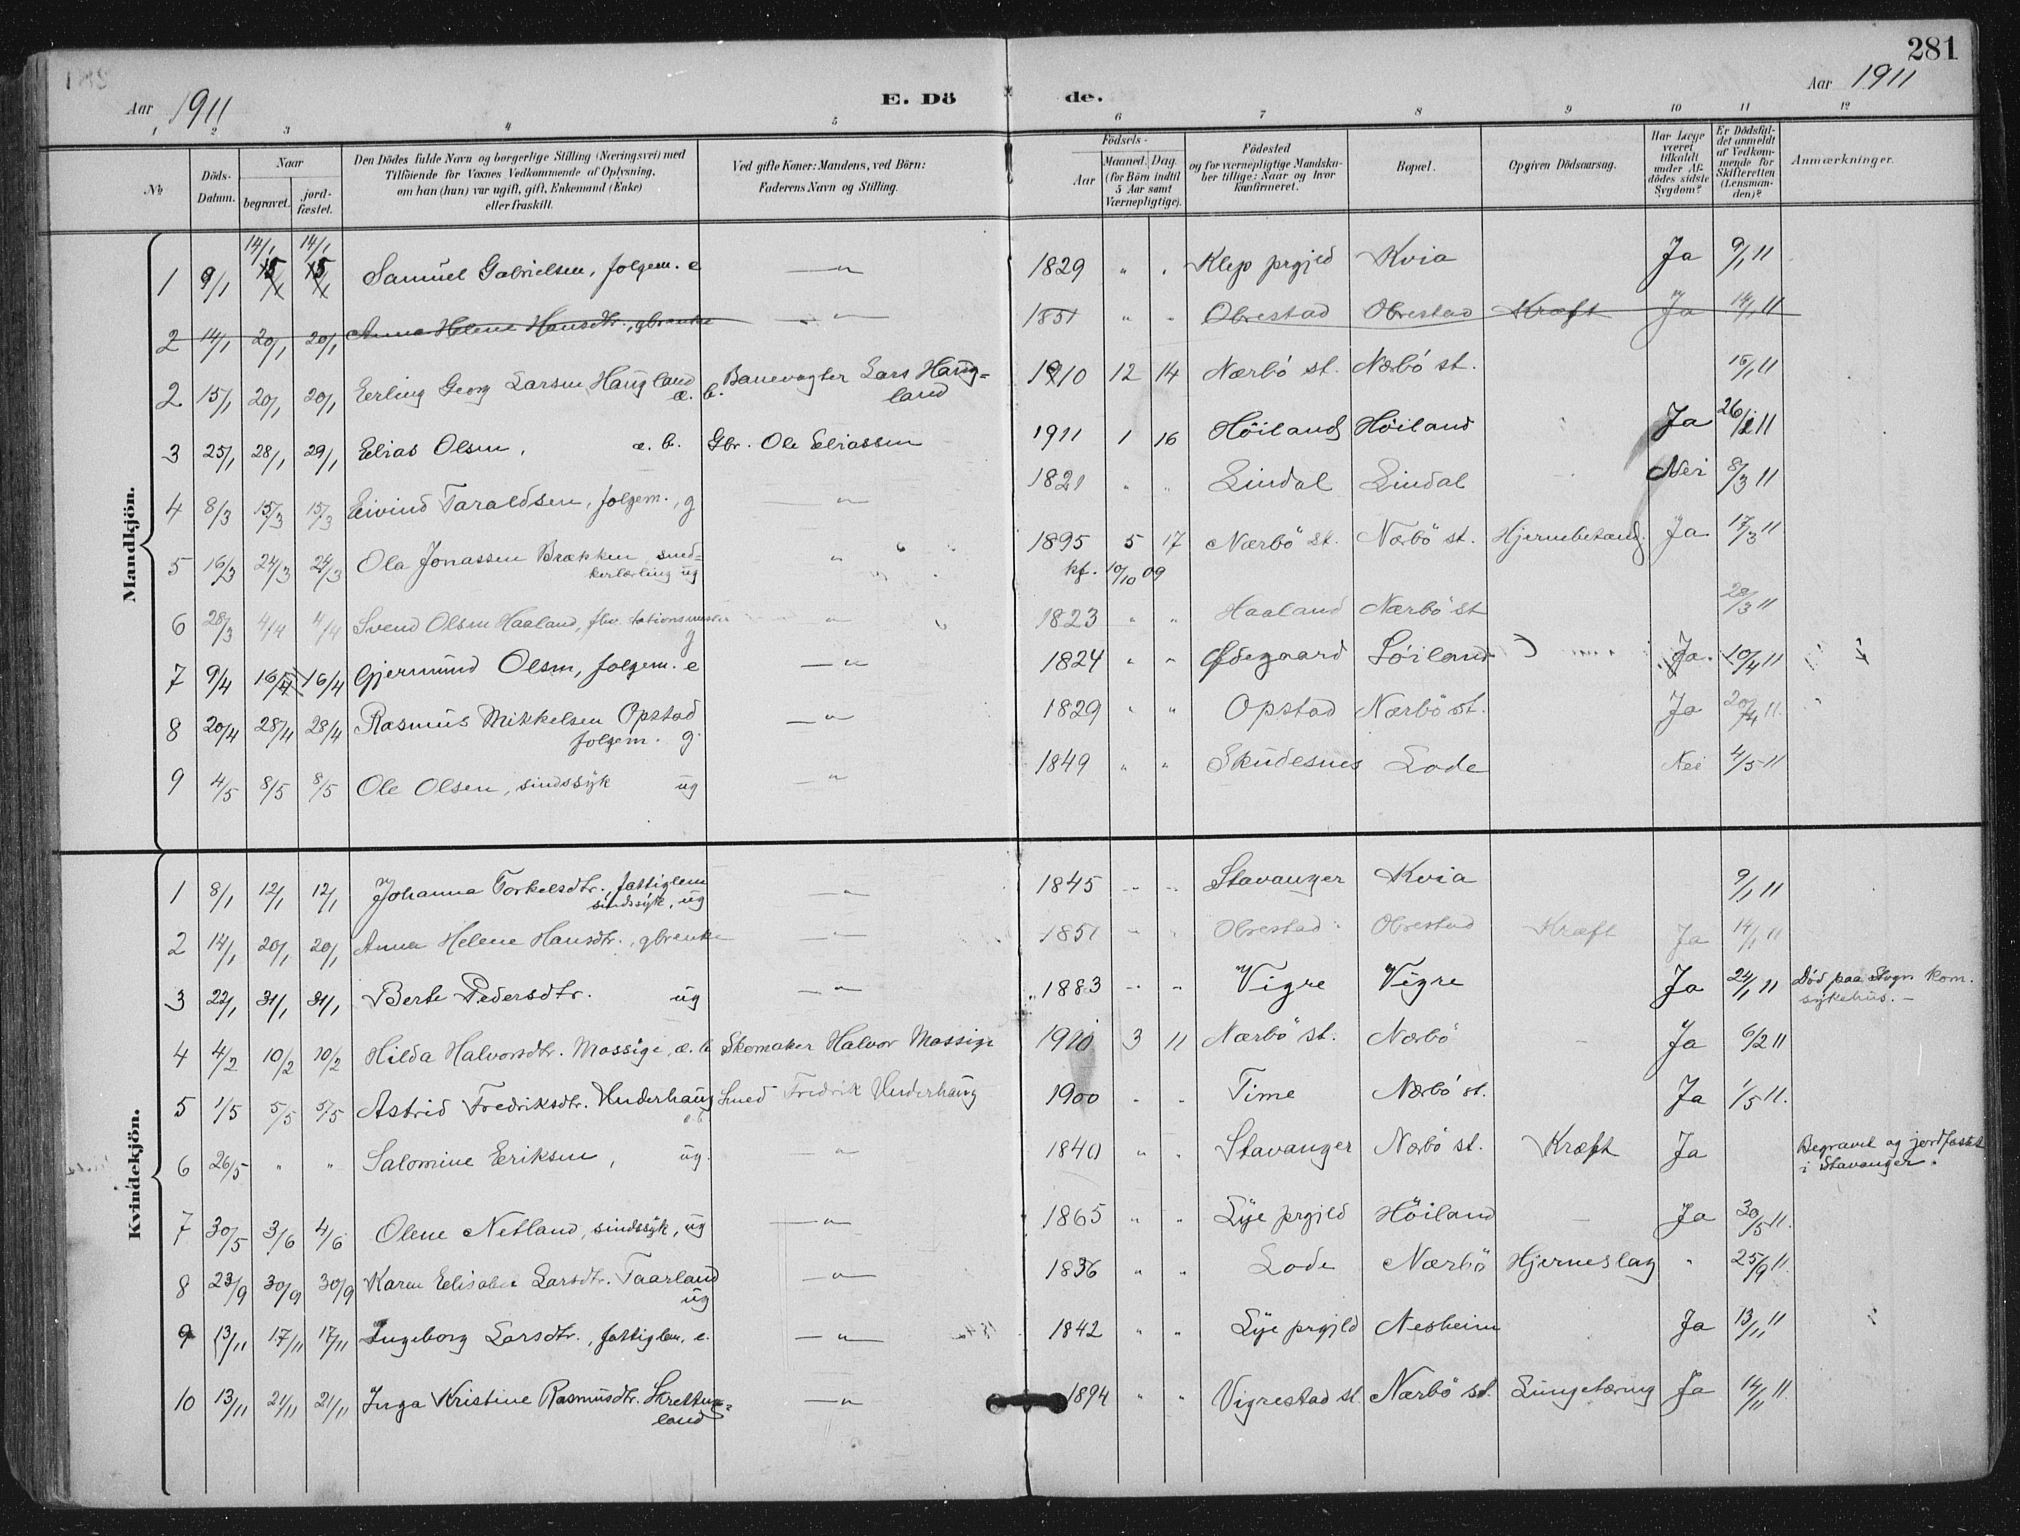 281
Aar 1911
E. Dö
de.
Aar 1911
1 2 3 4 5 6 7 8 9 10 11 12
No
Döds-Datum.
Naar
begravet.
jord-fæstet.
Den Dödes fulde Navn og borgerlige Stilling (Næringsvei) med
Tilföiende for Voxnes Vedkommende af Oplysning,
om han (hun) var ugift, gift, Enkemand (Enke)
eller fraskilt.
Ved gifte Koner: Mandens, ved Börn:
Faderens Navn og Stilling.
Födsels-
Aar
Maaned. Dag.
(for Börn indtil
5 Aar samt
Værnepligtige).
Födested
og for værnepligtige Mandska-
ber tillige: Naar og hvor
konfirmeret.
Bopæl.
Opgiven Dödsaarsag.
Har Læge
været
tilkaldt
under Af-
dödes sidste
Sygdom?
Er Dödsfal-
det anmeldt
af Vedkom-
mende for
Skifteretten
(Lensman-
den)?
Anmærkninger.
Mandkjön.
14/1 14/1
1 9/1 15/1 15/1 Samuel Gabrielsen, folgem. e — " — 1829 " " Klep prgjld Kvia Ja 9/1 11
2 14/1 20/1 20/1 Anna Helene Hansdtr., gbrenke — " — 1851 " " Obrestad Obrestad Kræft Ja 14/1 11
2 15/1 20/1 20/1 Erling Georg Larsen Haugland æ. b. Banevogter Lars Haug= 1910 12 14 Nærbö st. Nærbö st. 16/1 11
land
3 25/1 28/1 29/1 Elias Olsen, e. b. Gbr. Ole Eliassen 1911 1 16 Höiland Höiland Ja 26/1 11
4 8/3 15/3 15/3 Eivind Taraldsen, folgem., g — " — 1821 " " Lindal Lindal Nei 8/3 11
5 16/3 24/3 24/3 Ola Jonassen Brækken, sned- " 1895 5 17 Nærbö st. Nærbö st. Hjernebetænd. Ja 17/3 11
kerlærling ug kf. 10/10 09
6 28/3 4/4 4/4 Svend Olsen Haaland, fhv. stationsmester " 1823 " " Haaland Nærbö st 28/3 11
g
7 9/4 16/4 16/4 Gjermund Olsen, folgem. e — " — 1824 " " Ødegaard Söiland Ja. 10/4 11
8 20/4 28/4 28/4 Rasmus Mikkelsen Opstad — " — 1829 " " Opstad Nærbö st. Ja 20/4 11.
folgem. g.
9 4/5 8/5 8/5 Ole Olsen, sindssyk ug — " — 1849 " " Skudesnes Lode Nei 4/5 11
Kvindekjön.
1 8/1 12/1 12/1 Johanna Torkelsdtr., fattiglem — " — 1845 " " Stavanger Kvia 9/1 11
sindssyk, ug
2 14/1 20/1 20/1 Anna Helene Hansdtr., gbrenke — " — 1851 " " Obrestad Obrestad Kræft Ja 14/1 11
3 22/1 31/1 31/1 Berte Pedersdtr. ug — " — 1883 " " Vigre Vigre Ja 24/1 11 Död paa Stvgr. kom.
sykehus. —
4 4/2 10/2 10/2 Hilda Halvorsdtr. Mossige, æ. b Skomaker Halvor Mossige 1910 3 11 Nærbö st. Nærbö Ja 6/2 11
5 1/5 5/5 5/5 Astrid Fredriksdtr. Underhaug Smed Fredrik Underhaug 1900 " " Time Nærbö st. Ja 1/5 11.
e. b
6 26/5 " " Salomine Eriksen, ug. — " 1840 " " Stavanger Nærbö st. Kræft Ja Begravet og jordfæstet
i Stavanger.
7 30/5 3/6 4/6 Olene Netland, sindssyk, ug — " — 1865 " " Lye prgjld Höiland Ja 30/5 11.
8 23/9 30/9 30/9 Karen Elisabet Larsdtr. Taarland — " — 1836 " " Lode Nærbö Hjerneslag " 25/9 11.
ug
9 13/11 17/11 17/11 Ingeborg Larsdtr., fattiglem, e. — " — 1842 " " Lye prgjld Nesheim Ja 13/11 11
10 13/11 21/11 21/11 Inga Kristine Rasmusdtr. Skretting= — " — 1894 " " Vigrestad st. Nærbö st. Lungetæring Ja 14/11 11.
land